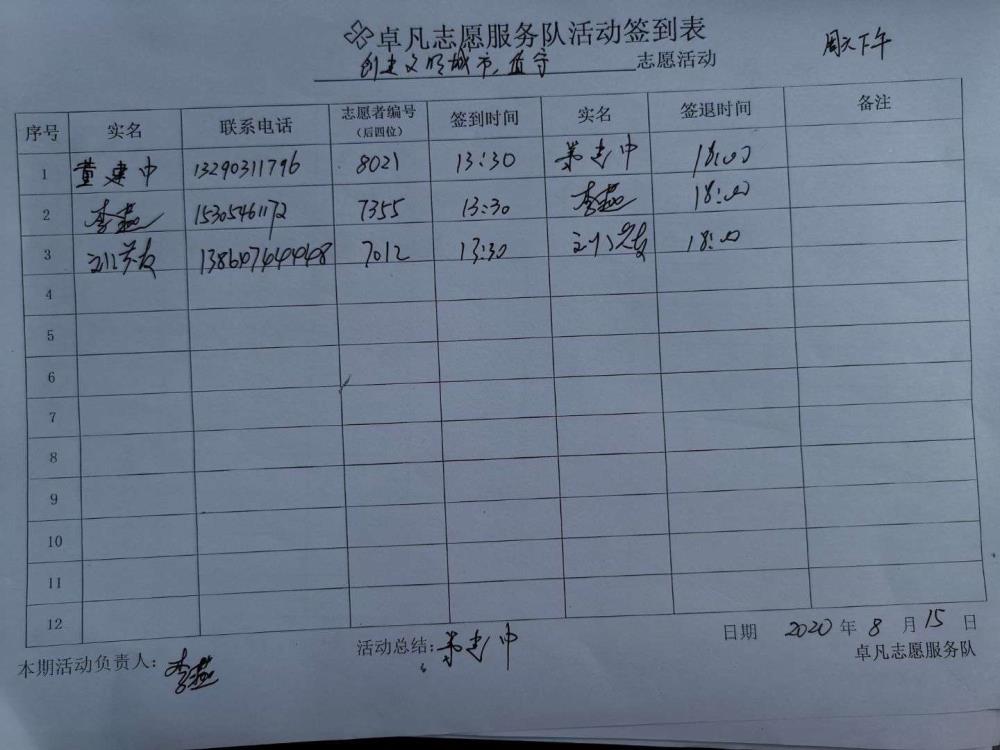 卓凡志愿服务队活动签到表
周天下午
创建文明城市,值守 志愿活动
序号 实名 联系电话 志愿者编号(后四位) 签到时间 实名 签退时间 备注
1 董建中 13290311796 8021 13:30 董建中 18:00
2 李燕 15305461172 7355 13:30 李燕 18:00
3 7012 13:30 18:00
4
5
6
7
8
9
10
11
12
日期 2020年8月15日
本期活动负责人:李燕 活动总结:董建中
卓凡志愿服务队